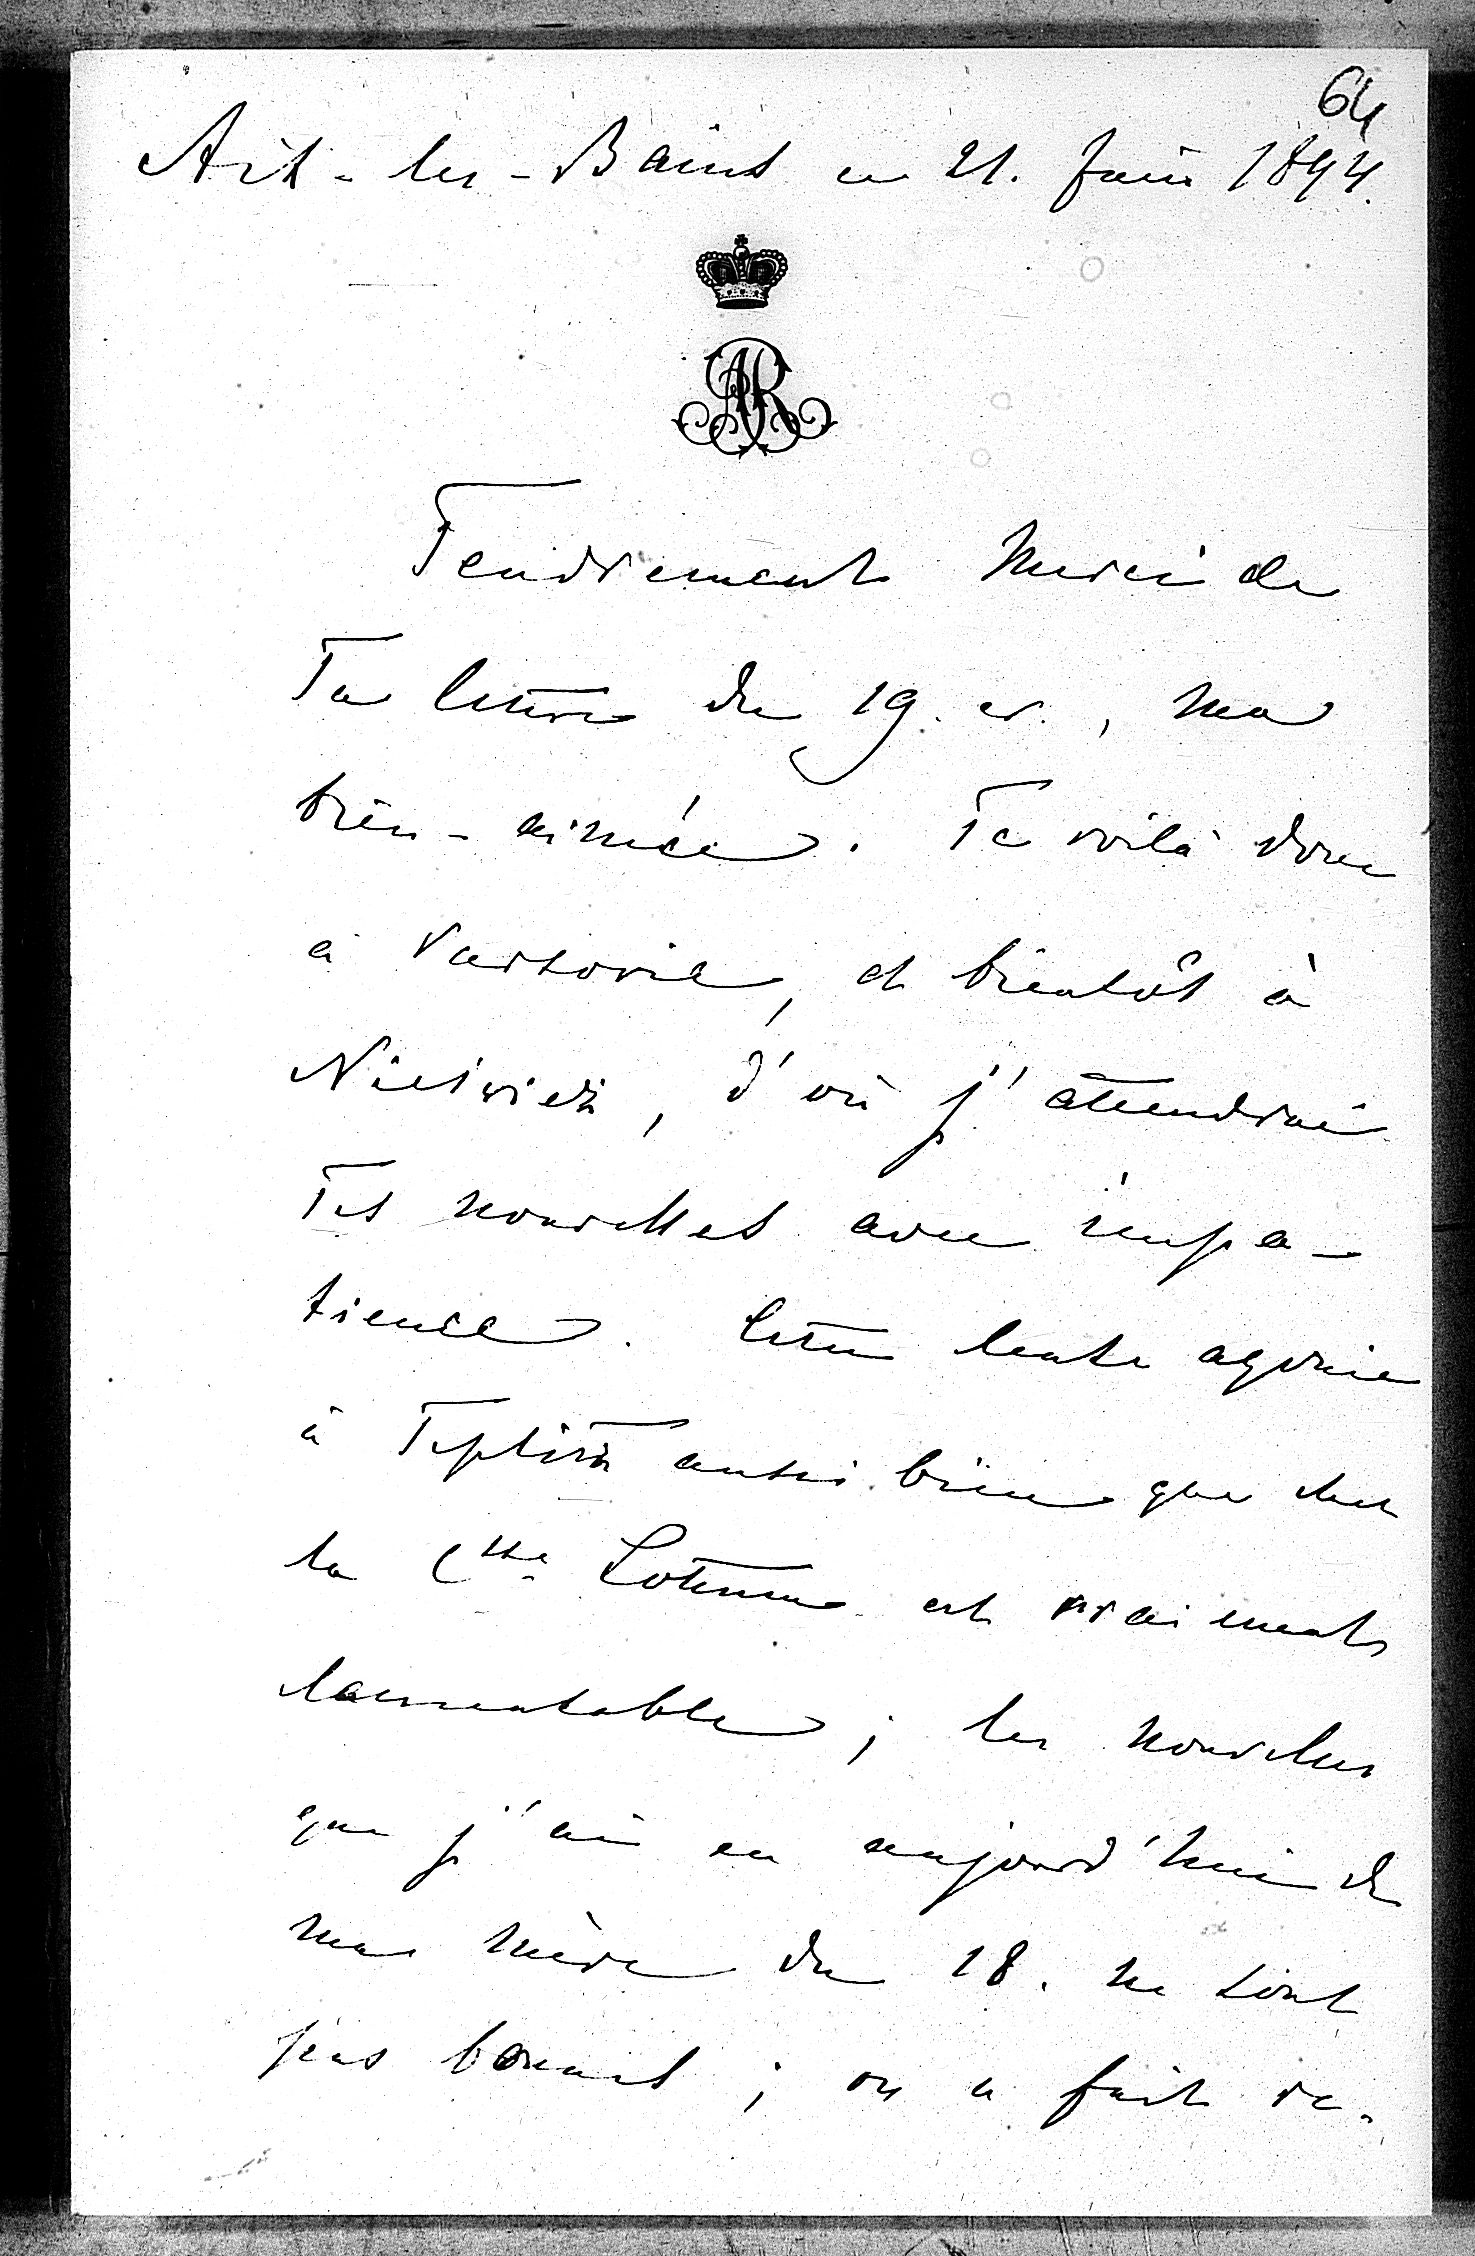 64
Aix-les-Bains ce 21. Juin 1894.
AR
Tendrement merci de
Ta lettre du 19. cr., ma
bien-aimée. Te voilà donc
à Varsovie, et bientôt à
Nieswiez, d'où j'attendrai
Tes nouvelles avec impa-
tience. Cette lente agonie
à Teplitz aussi bien que chez
la Csse Lottum est vraiment
lamentable; les nouvelles
que j'ai eu aujourd'hui de
ma mère du 18. ne sont
pas bonnes; on a fait ve-